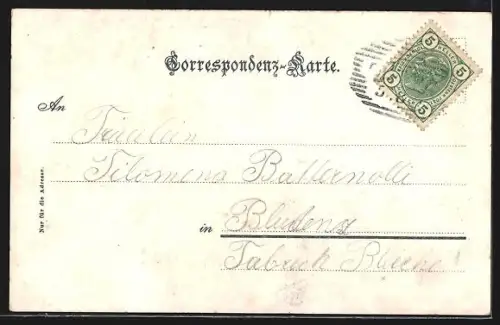 Correspondenz-Karte.
An
Fräulein
Filomena Batternolli
in Bludenz
Fabrick
Nur für die Adresse.
5 5 5 5